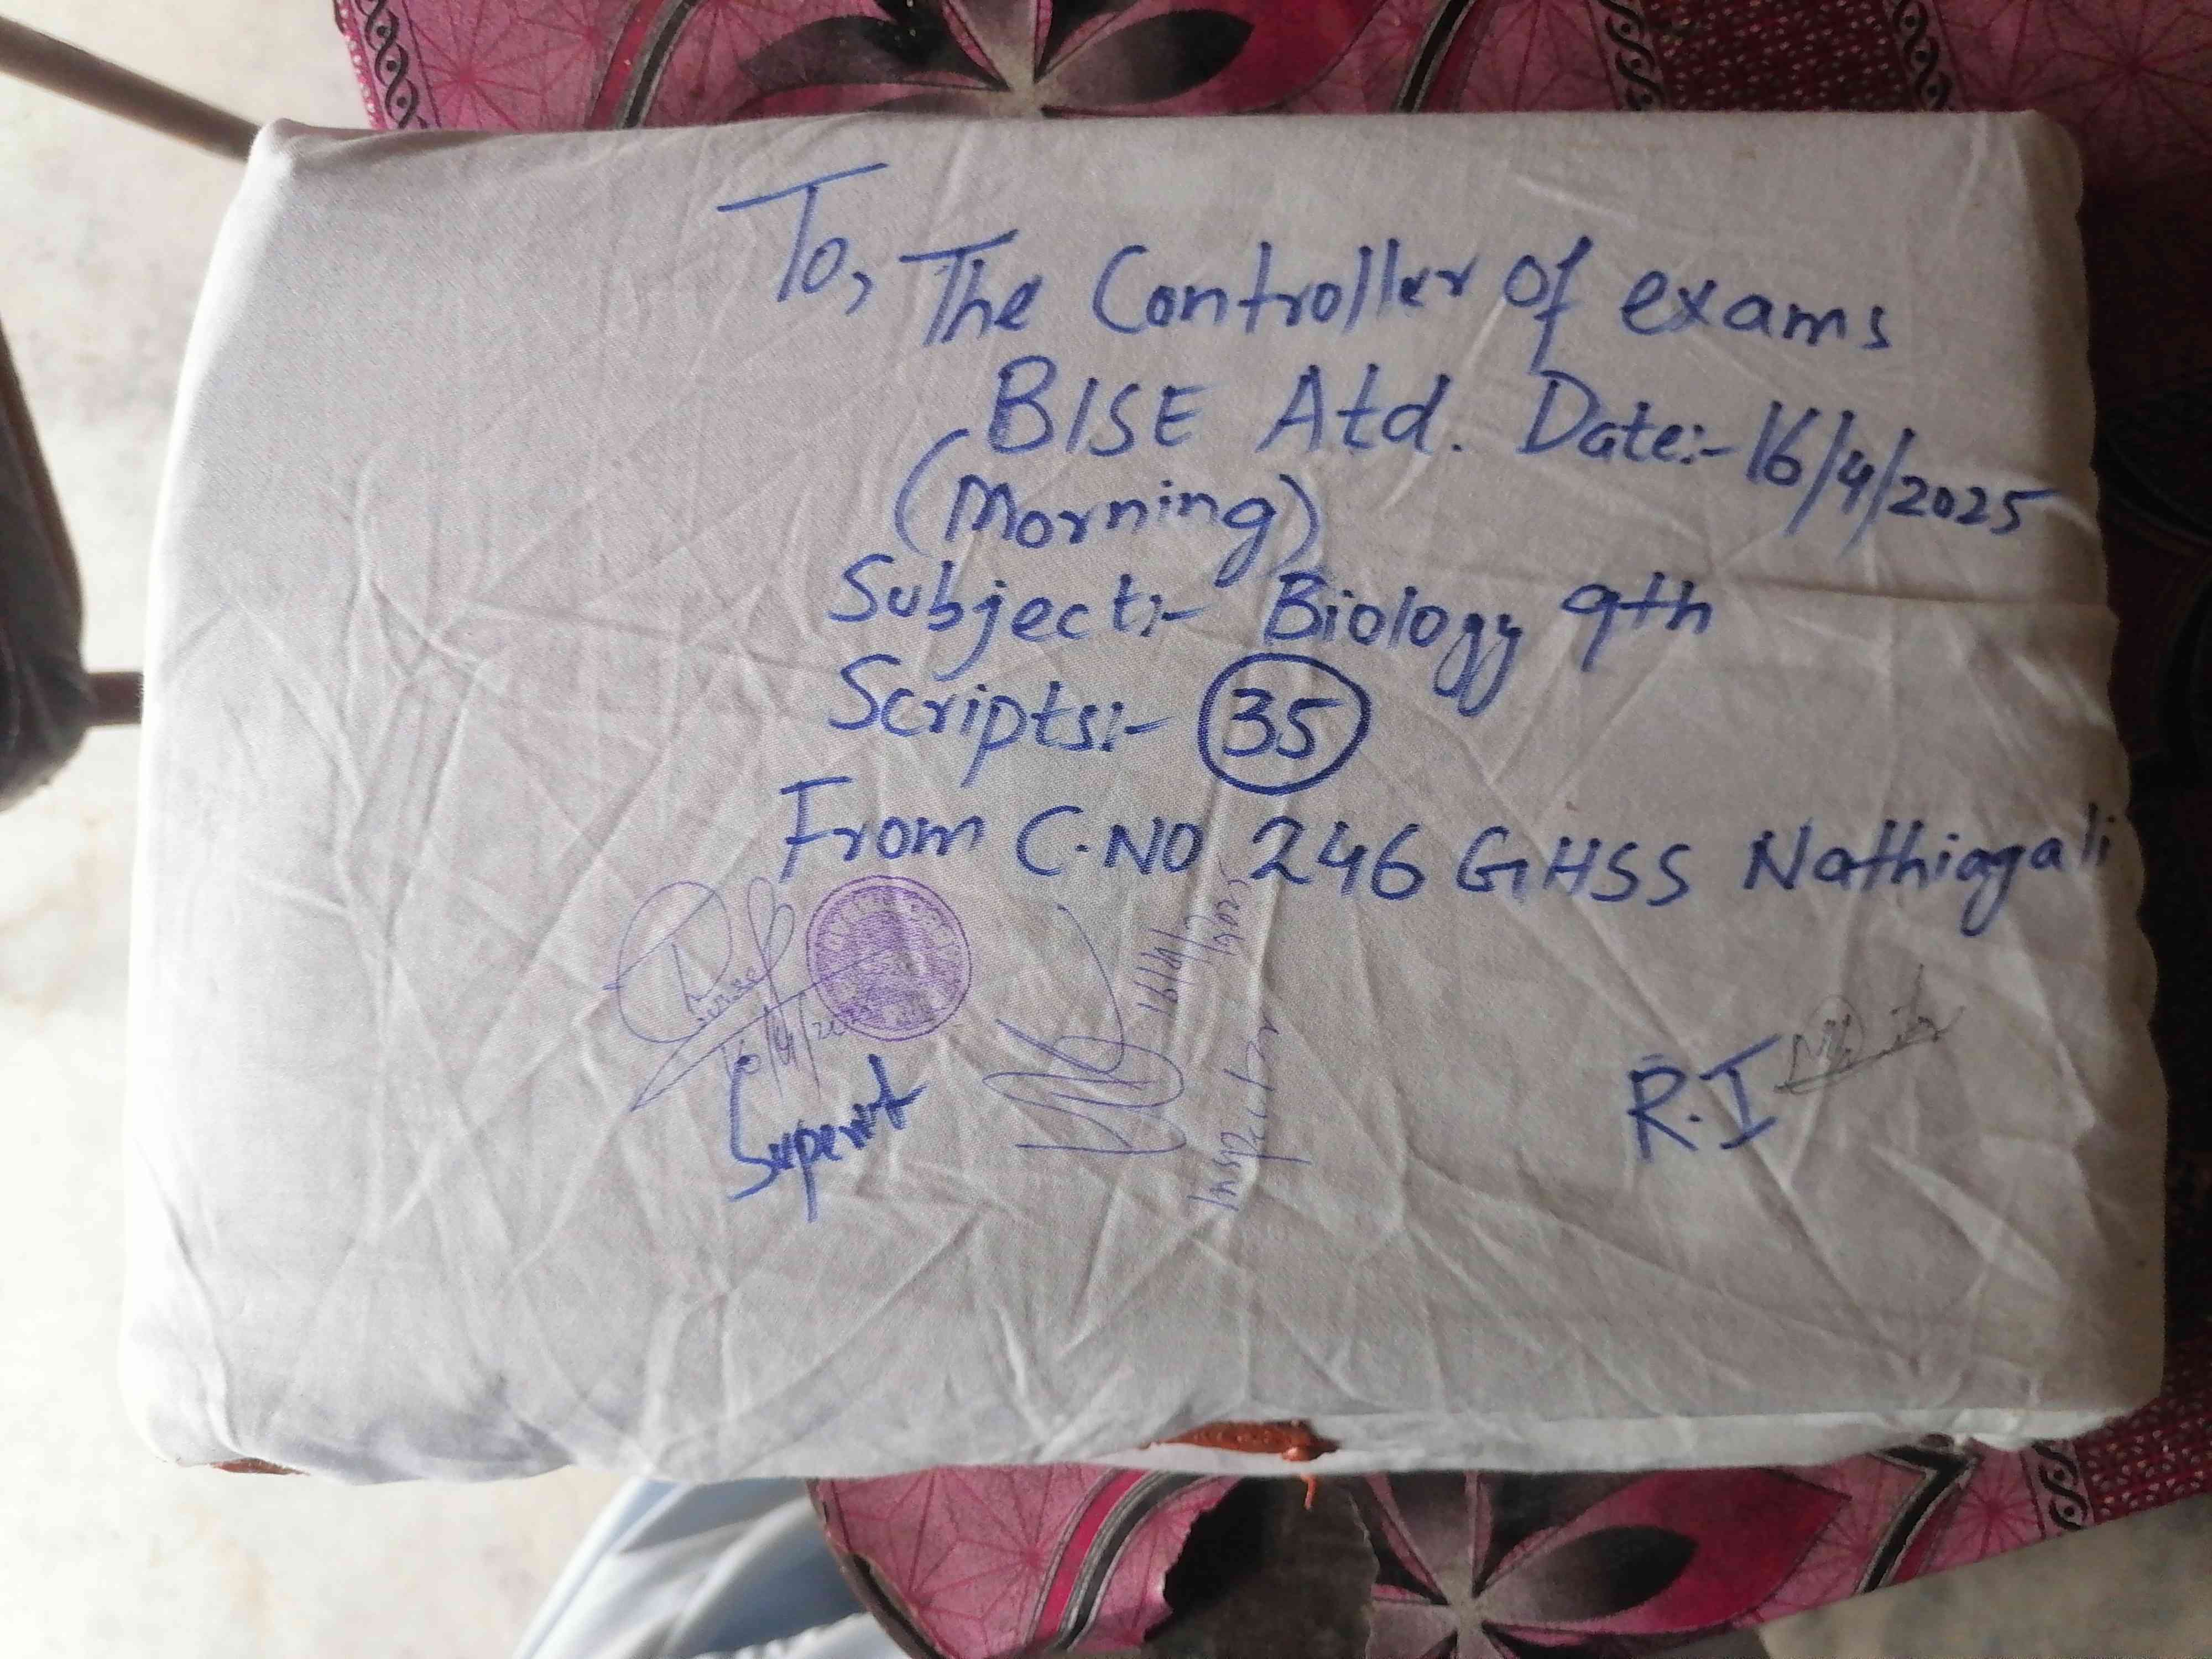 To, The Controller of exams
BISE Atd. Date:- 16/4/2025
(Morning)
Subject:- Biology 9th
Scripts:- 35
From C.NO 246 GHSS Nathiagali
16/4/2025
Supernt
16/4/2025
Inspector
R.I